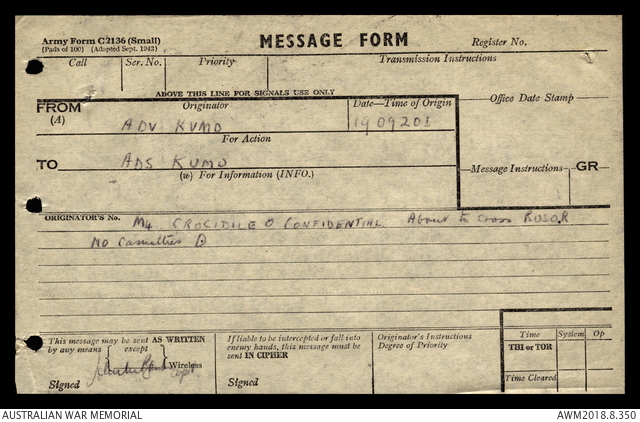 Army Form C2136 (Small)
(Pads of 100) (Adapted Sept. 1943)
MESSAGE FORM
Register No.
Call Ser. No. Priority Transmission Instructions
ABOVE THIS LINE FOR SIGNALS USE ONLY
FROM (A) Originator Date—Time of Origin Office Date Stamp
ADV KUMD 190920I
For Action
TO ADS KUMD
(w) For Information (INFO.) Message Instructions GR
ORIGINATOR'S No. M4 CROCIDILE O CONFIDENTIAL About to cross
No Casualties
This message may be sent AS WRITTEN
by any means except
Wireless
Signed Capt
If liable to be intercepted or fall into
enemy hands, this message must be
sent IN CIPHER
Signed
Originator's Instructions
Degree of Priority
Time System Op
THI or TOR
Time Cleared
AUSTRALIAN WAR MEMORIAL AWM2018.8.350